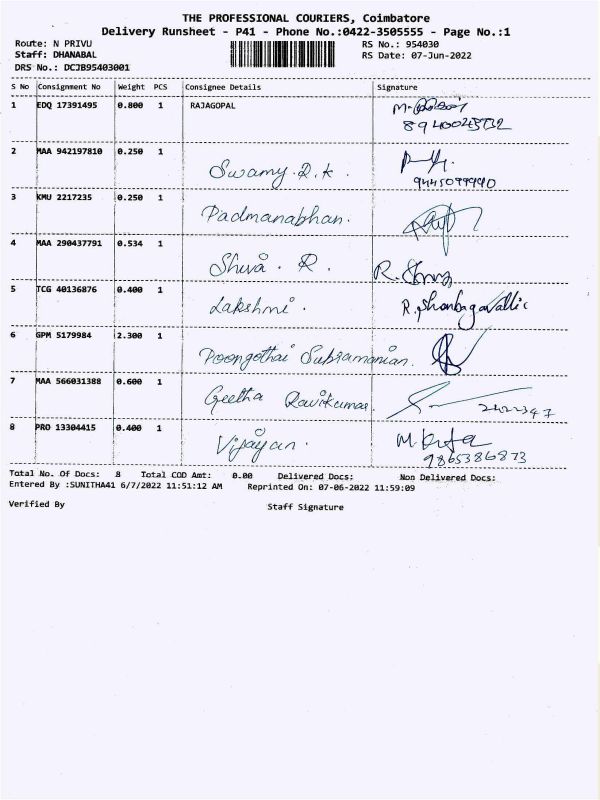 THE PROFESSIONAL COURIERS, Coimbatore
Delivery Runsheet - P41 - Phone No.:0422-3505555 - Page No.:1
Route: N PRIVU RS No.: 954030
Staff: DHANABAL RS Date: 07-Jun-2022
DRS No.: DCJB95403001
S No Consignment No Weight PCS Consignee Details Signature
1 EDQ 17391495 0.800 1 RAJAGOPAL
2 MAA 942197810 0.250 1 Swamy.R.K.
9445099990
3 KMU 2217235 0.250 1 Padmanabhan.
4 MAA 290437791 0.534 1 Shiva. R.
5 TCG 40136876 0.400 1 Lakshmi. R.Shanbagavallic
6 GPM 5179984 2.300 1 Poongothai Subramanian.
7 MAA 566031388 0.600 1 Geetha Ravikumar.
8 PRO 13304415 0.400 1 Vijayan.
9865386873
Total No. Of Docs: 8 Total COD Amt: 0.00 Delivered Docs: Non Delivered Docs:
Entered By :SUNITHA41 6/7/2022 11:51:12 AM Reprinted On: 07-06-2022 11:59:09
Verified By Staff Signature